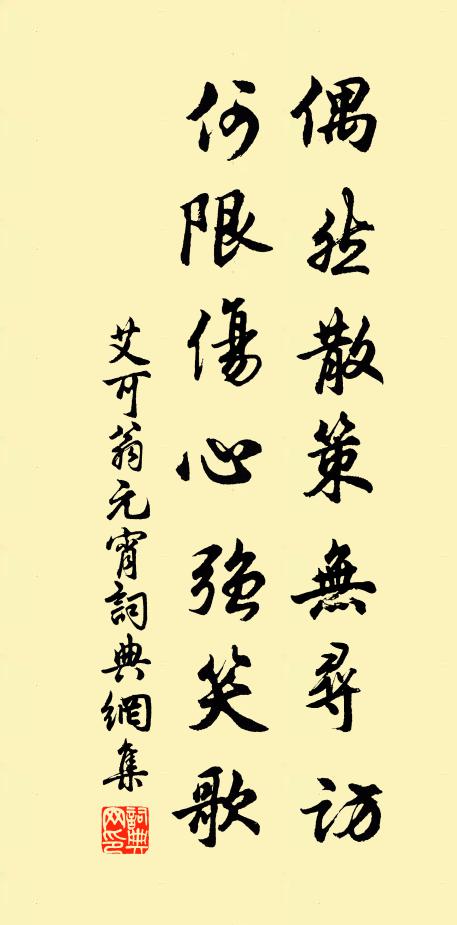 偶然散策無尋訪
何限傷心強笑歌
艾可翁元宵詞典網集
詞典網印